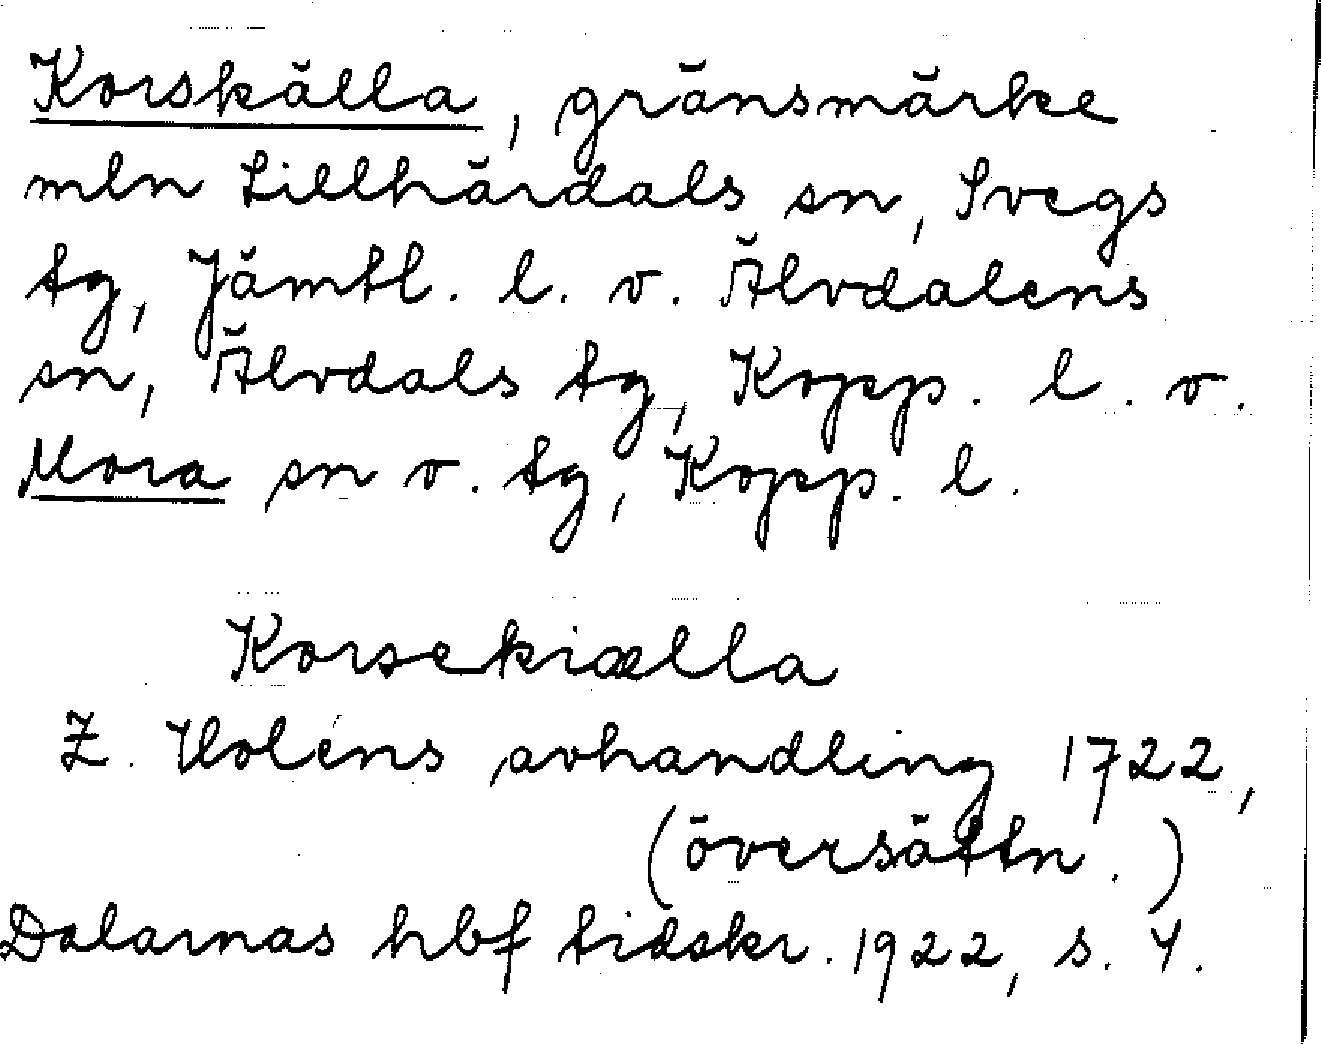 Korskälla, gränsmärke
mln Lillhärdals sn, Svegs
tg, Jämtl. l. o. Älvdalens
sn, Älvdals tg, Kopp. l. o.
Mora sn o. tg, Kopp. l.
Korsekiælla
Z. Holéns avhandling 1722,
(översättn.)
Dalarnas hbf tidskr. 1922, s. 4.